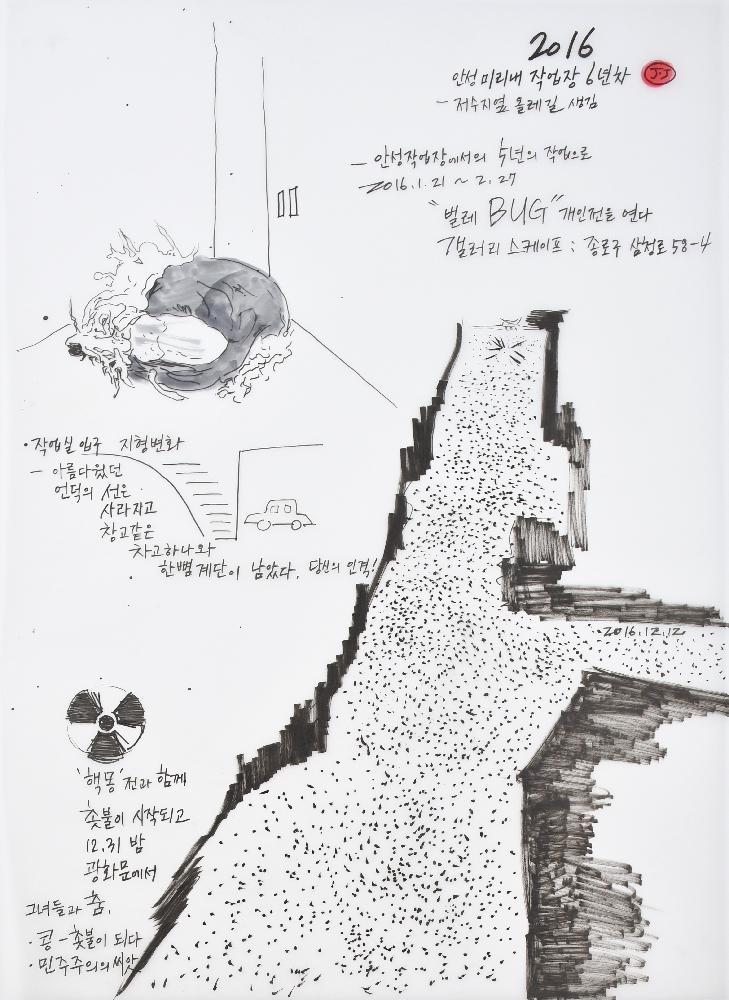 2016
안성 미리내 작업장 6년차
J.J
- 저수지옆 올레길 생김
- 안성작업장에서의 5년의 작업으로
2016.1.21 ~ 2.27
"벌레 BUG" 개인전을 연다
갤러리 스케이프 : 종로구 삼청로 58-4
· 작업실 입구 지형변화
- 아름다웠던
언덕의 선은
사라지고
창고같은
차고하나와
한뼘 계단이 남았다. 당신의 인격!
2016.12.12
'핵몽' 전과 함께
촛불이 시작되고
12.31 밤
광화문에서
그녀들과 춤.
· 콩 - 촛불이 되다
· 민주주의의 씨앗